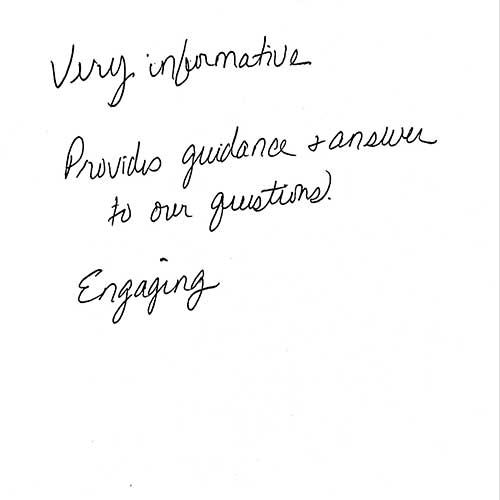 Very informative
Provides guidance & answer
to our questions.
Engaging